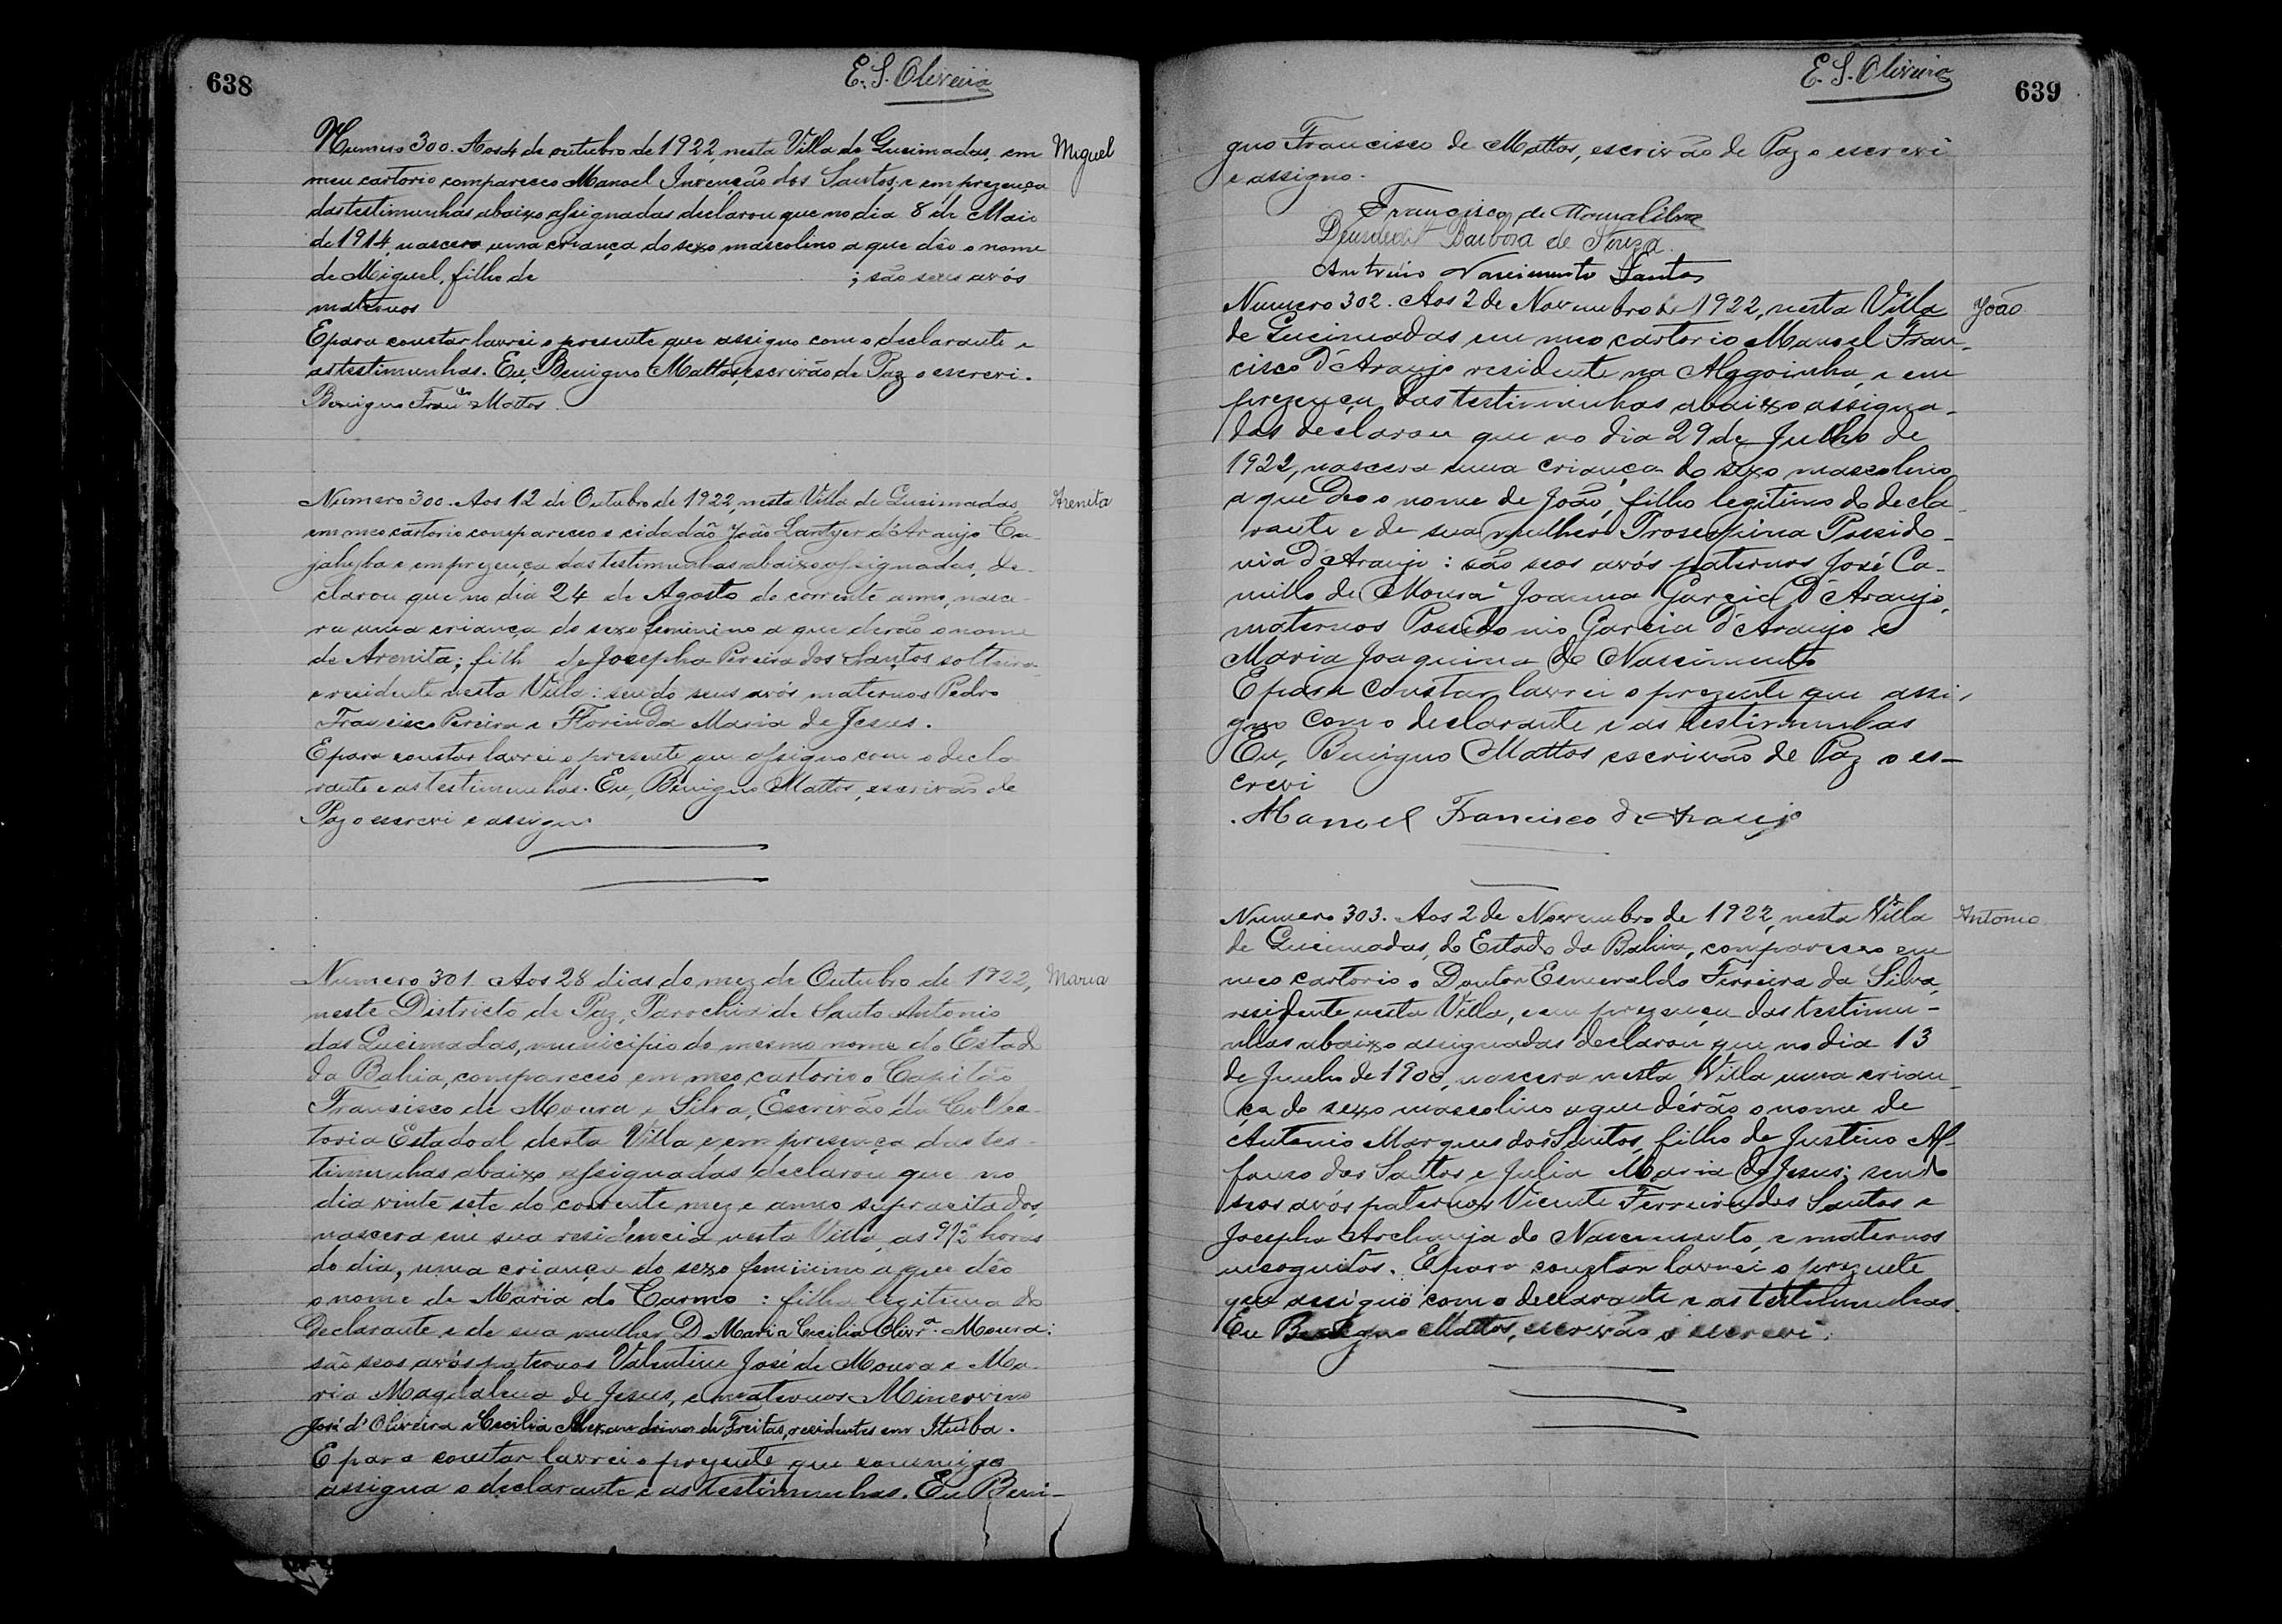 638
E. S. Oliveira
Numero 300. Aos 4 de outubro de 1922, nesta Villa de Queimadas, em
Miguel
meu cartorio compareceo Manoel Invenção dos Santos, e em prezença
das testimunhas abaixo assignadas declarou que no dia 8 de Maio
de 1914, nascera uma criança do sexo mascolino a que dêo o nome
de Miguel, filho de ; são seus avós
maternos
E para constar lavrei o presente que assigno com o declarante e
as testimunhas. Eu, Benigno Mattos, escrivão de Paz o escrevi.
Benigno Franco Mattos.
Numero 300. Aos 12 de Outubro de 1922, nesta Villa de Queimadas,
Arenita
em meo cartorio compareceo o cidadão João Lantyer d'Araujo Ca-
jahyba e em prezença das testimunhas abaixo assignadas, de-
clarou que no dia 24 de Agosto do corrente anno, nasce-
ra uma criança do sexo feminino a que derão o nome
de Arenita; filh de Josepha Pereira dos Santos solteira
e residente nesta Villa: sendo seus avós maternos Pedro
Francisco Pereira e Florinda Maria de Jesus.
E para constar lavrei o presente que assigno com o decla-
rante e as testimunhas. Eu, Benigno Mattos, escrivão de
Paz o escrevi e assigno
Numero 301. Aos 28 dias do mez de Outubro de 1922,
Maria
neste Districto de Paz, Parochia de Santo Antonio
das Queimadas, municipio do mesmo nome do Estado
da Bahia, compareceo em meo cartorio o Capitão
Francisco de Moura e Silva, Escrivão da Collec-
toria Estadoal desta Villa e em presença das tes-
timunhas abaixo assignadas declarou que no
dia vinte sete do corrente mez e anno supracitados,
nascera em sua residencia nesta Villa, as 9 1/2 horas
do dia, uma criança do sexo feminino a que dêo
o nome de Maria do Carmo : filha legitima do
Declarante e de sua mulher D. Maria Cecilia Olivrª. Moura:
são seos avós paternos Valentim José de Moura e Ma-
ria Magdalena de Jesus, e maternos Minervino
José d'Oliveira e Cecilia Alexandrina de Freitas, residentes em Itiúba.
E para constar lavrei o prezente que commigo
assigna o declarante e as testimunhas. Eu Beni-
E. S. Oliveira
639
gno Francisco de Mattos, escrivão de Paz o escrevi
e assigno.
Francisco de Moura Silva
Barbosa de Souza
Antonio Nascimento Santos
Numero 302. Aos 2 de Novembro de 1922, nesta Villa
João
de Queimadas em meo cartorio Manoel Fran-
cisco D'Araujo residente na Alagoinha, e em
prezença das testimunhas abaixo assigna-
das declarou que no dia 29 de Julho de
1922, nascera uma criança do sexo mascolino
a que deo o nome de João, filho legitimo do decla-
rante e de sua mulher Proserpina Possido-
nia D'Araujo : são seos avós paternos José Ca-
millo de Moura e Joanna Garcia D'Araujo,
maternos Possidonio Garcia D'Araujo e
Maria Joaquina do Nascimento
E para constar lavrei o prezente que assi-
gno com o declarante e as testimunhas
Eu, Benigno Mattos escrivão de Paz o es-
crevi
Manoel Francisco de Araujo
Numero 303. Aos 2 de Novembro de 1922, nesta Villa
Antonio
de Queimadas, do Estado da Bahia, compareceo em
meo cartorio o Doutor Esmeraldo Ferreira da Silva,
residente nesta Villa, e em prezença das testimu-
nhas abaixo assignadas declarou que no dia 13
de Junho de 1900, nascera nesta Villa uma crian-
ça do sexo mascolino a que dérão o nome de
Antonio Marques dos Santos, filho de Justino Af-
fonso dos Santos e Julia Maria de Jesus; sendo
seos avós paternos Vicente Ferreira dos Santos e
Josepha Archanja do Nascimento, e maternos
incognitos. E para constar lavrei o prezente
que assigno com o declarante e as testimunhas.
Eu Benigno Mattos, escrivão o escrevi.